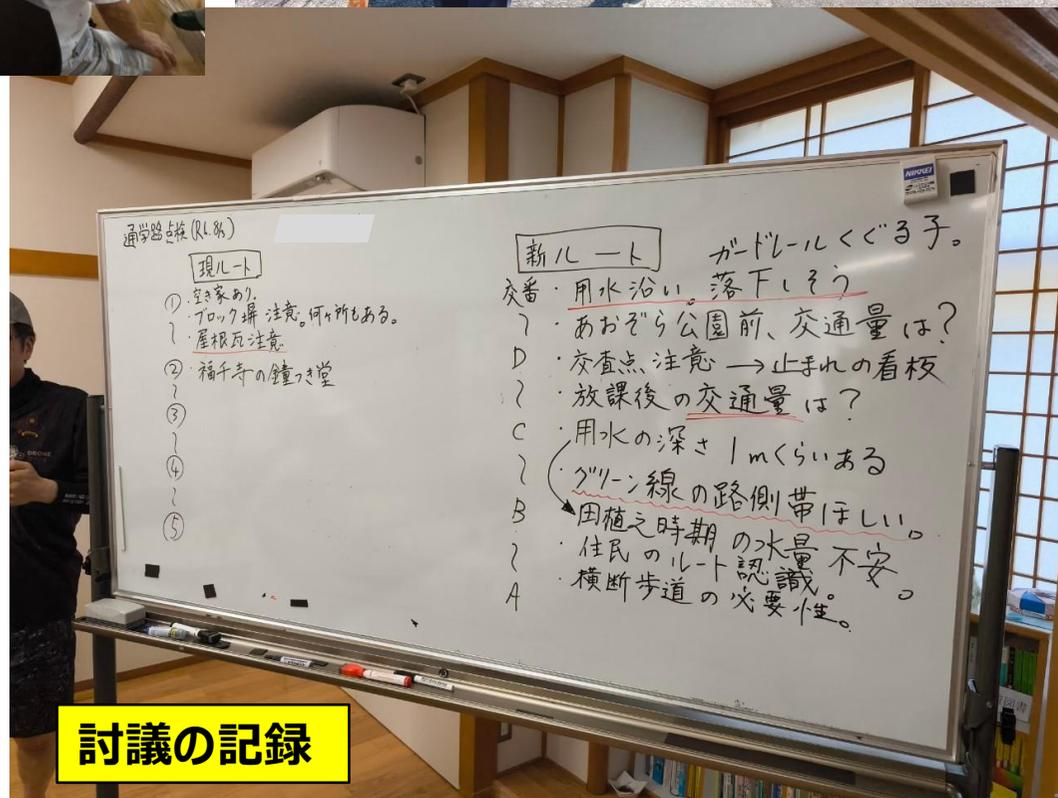 通学路点検(R6.8/4)
現ルート
① ・空き家あり。
〜 ・ブロック塀 注意。何ヶ所もある。
・屋根瓦注意
② ・福千寺の鐘つき堂
〜
③
〜
④
〜
⑤
新ルート ガードレールくぐる子。
交番 ・用水沿い。落下しそう
〜 ・あおぞら公園前、交通量は?
D ・交査点注意→止まれの看板
〜 ・放課後の交通量は?
C ・用水の深さ 1mくらいある
〜 ・グリーン線の路側帯ほしい。
B 田植え時期の水量不安。
〜 ・住民のルート認識。
A ・横断歩道の必要性。
NIKKEI
DRONE
討議の記録